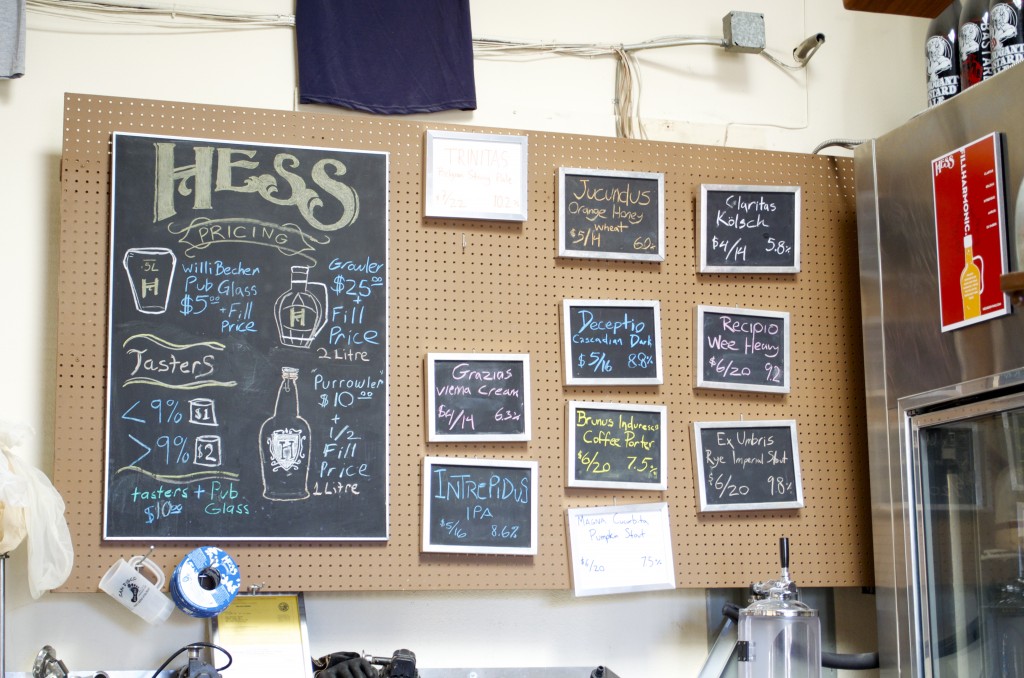 HESS
PRICING
.5L
H
Willi Becher
Pub Glass
$5.00
+ Fill
Price
Growler
$25.00
+
Fill
Price
2 Litre
H
Tasters
<9% $1
>9% $2
tasters + Pub
Glass
$10.00
"Purrowler"
$10.00
+
1/2
Fill
Price
1 Litre
H
TRINITAS
Jucundus
Orange Honey
wheat
$5/14 6.0%
Claritas
Kölsch
$4/14 5.8%
Deceptio
Cascadian Dark
$5/16 8.8%
Recipio
Wee Heavy
$6/20 9.2
Grazias
Vienna Cream
$4/14 6.3%
Brunus Induresco
Coffee Porter
$6/20 7.5%
Ex Umbris
Rye Imperial Stout
$6/20 9.8%
INTREPIDUS
IPA
$5/16 8.6%
Magna Cucurbita
Pumpkin Stout
$6/20 7.5%
HESS
FILLHARMONIC.
BASTARD
HESS